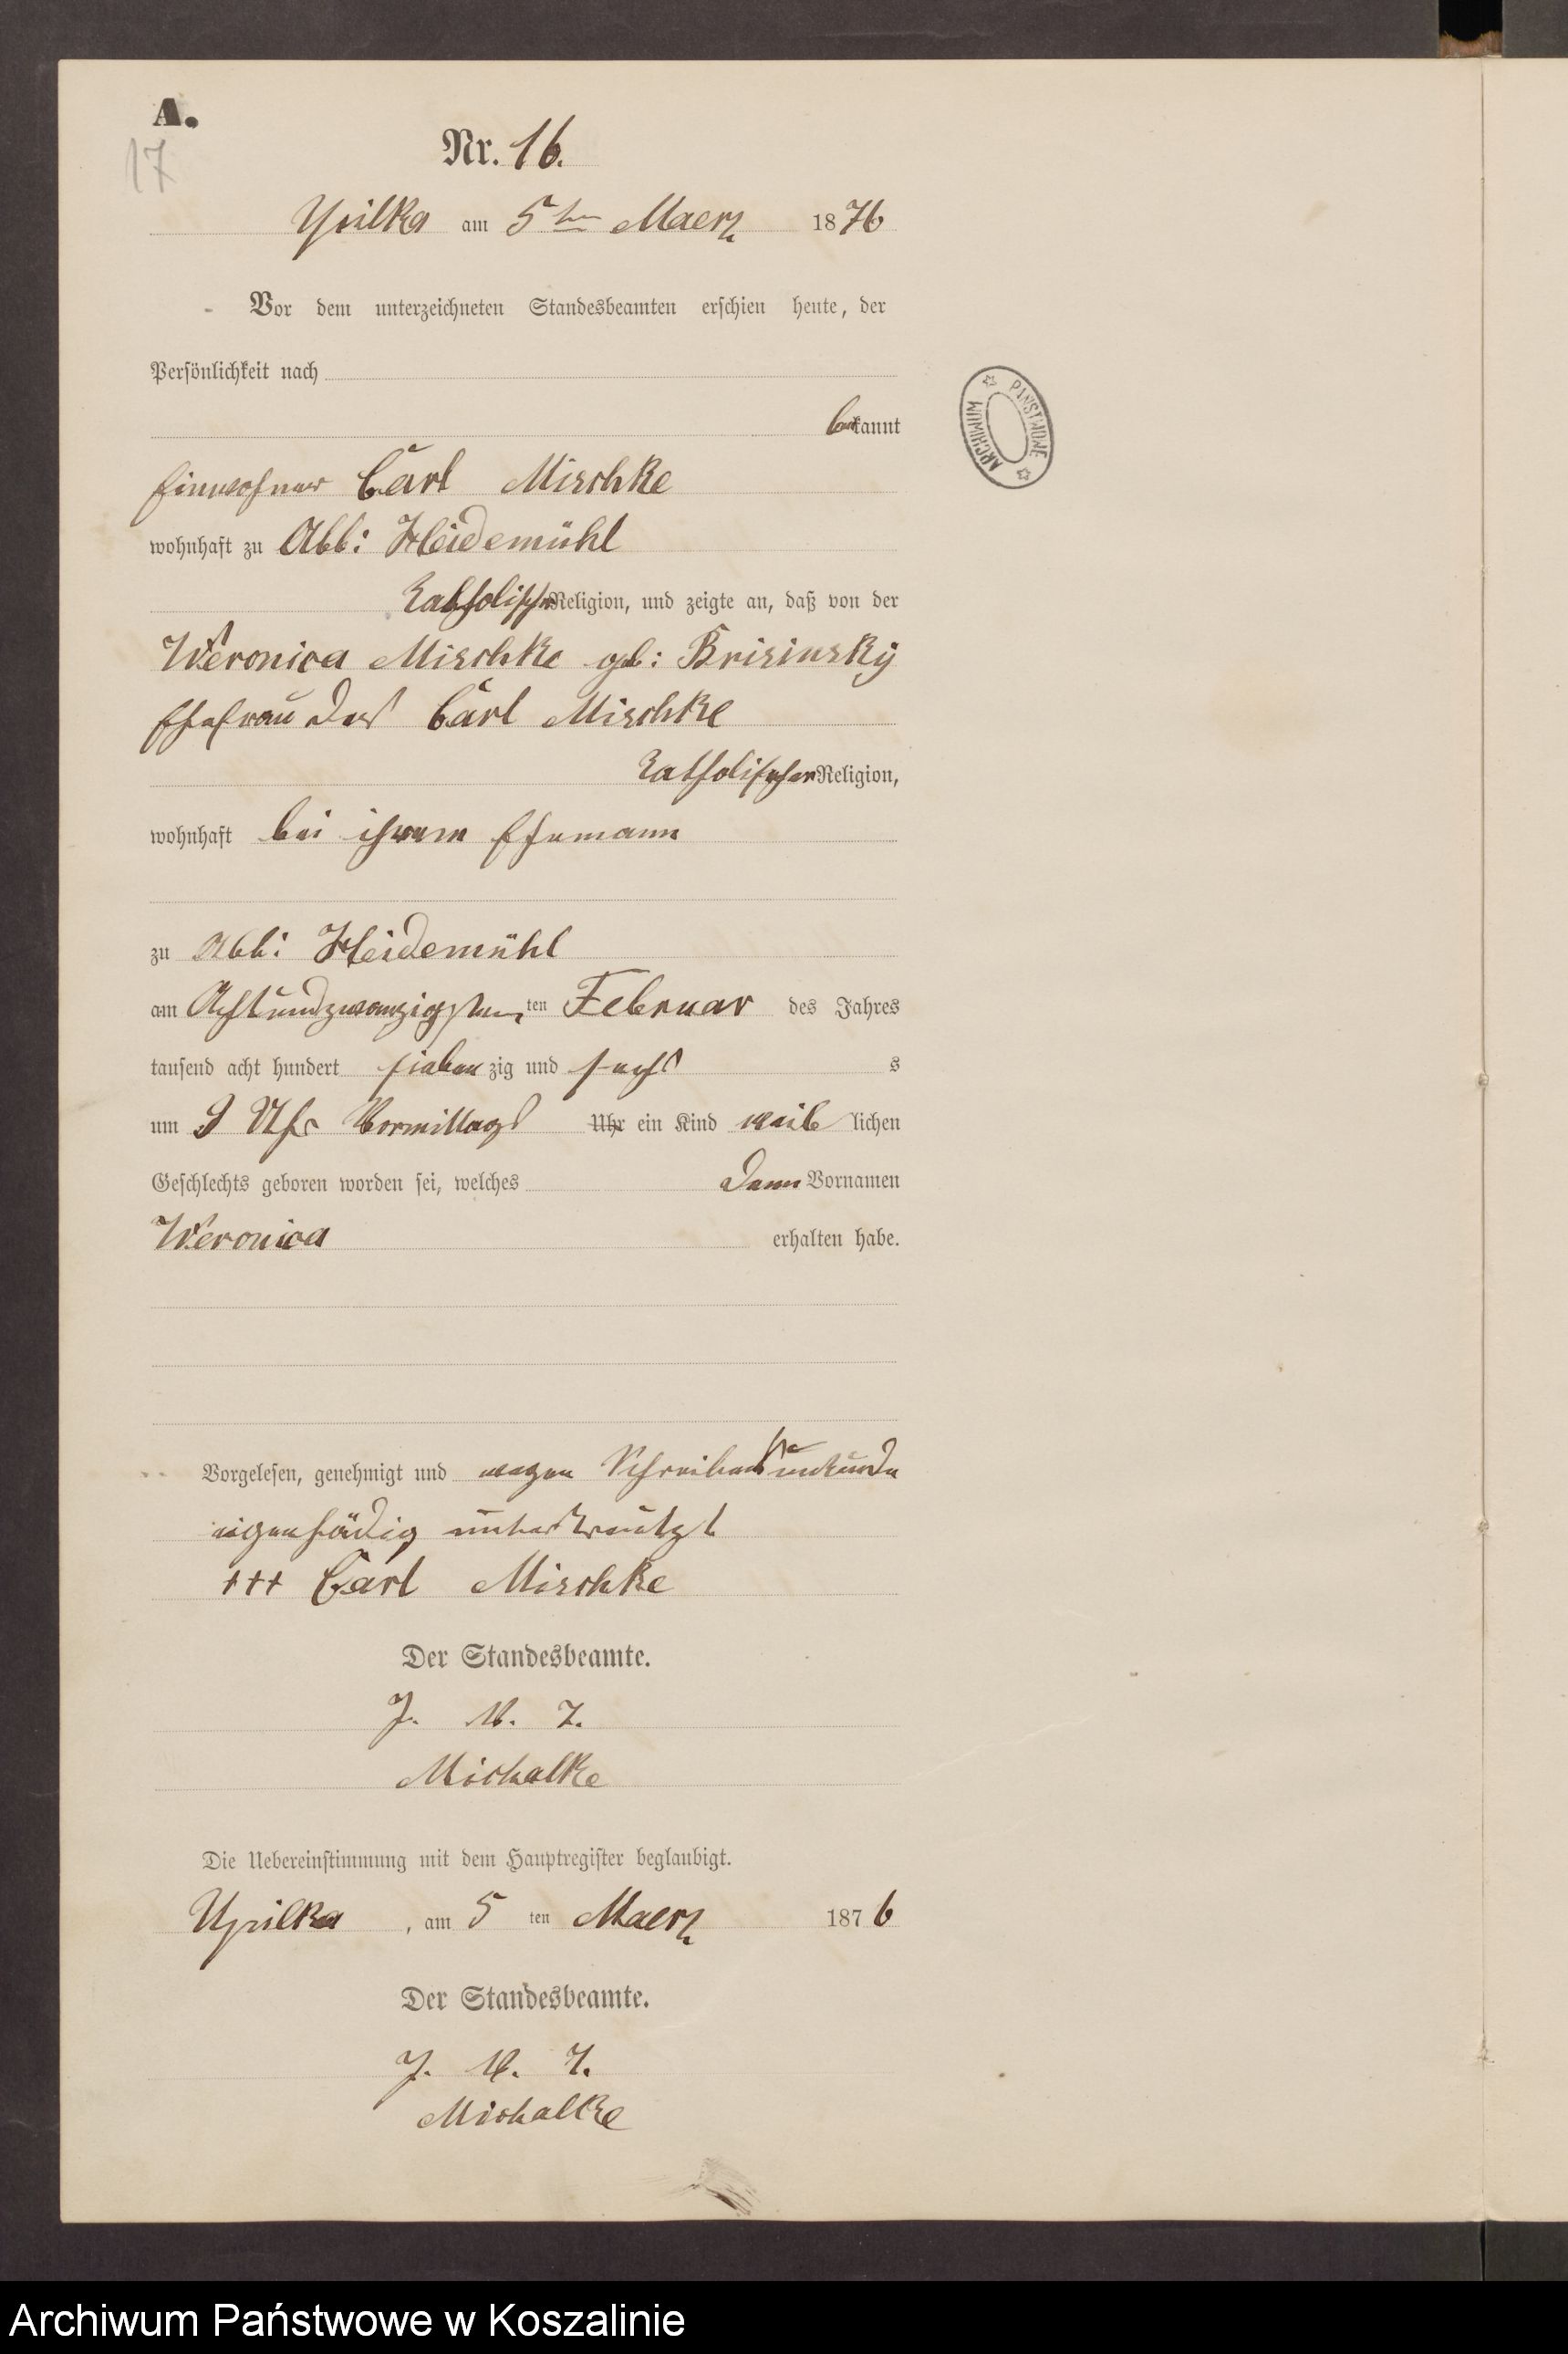 A.
17
Nr. 16.
Upilka am 5ten Maerz 1876
Vor dem unterzeichneten Standesbeamten erschien heute, der
Persönlichkeit nach
bekannt
Einwohner Carl Mischke
wohnhaft zu Abb: Heidemühl
katholischer Religion, und zeigte an, daß von der
Weronica Mischke geb: Brisinsky
Ehefrau des Carl Mischke
katholischer Religion,
wohnhaft bei ihrem Ehemann
zu Abb: Heidemühl
am Achtundzwanzigsten ten Februar des Jahres
tausend acht hundert sieben zig und sechs s
um 9 Uhr Vormittags Uhr ein Kind weib lichen
Geschlechts geboren worden sei, welches den Vornamen
Weronica erhalten habe.
Vorgelesen, genehmigt und wegen Schreibens unkunde
eigenhädig unterkreutzt
+++ Carl Mischke
Der Standesbeamte.
J. V.
Michalke
Die Uebereinstimmung mit dem Hauptregister beglaubigt.
Upilka, am 5 ten Maerz 1876
Der Standesbeamte.
J. V.
Michalke
ARCHIWUM PAŃSTWOWE
Archiwum Państwowe w Koszalinie